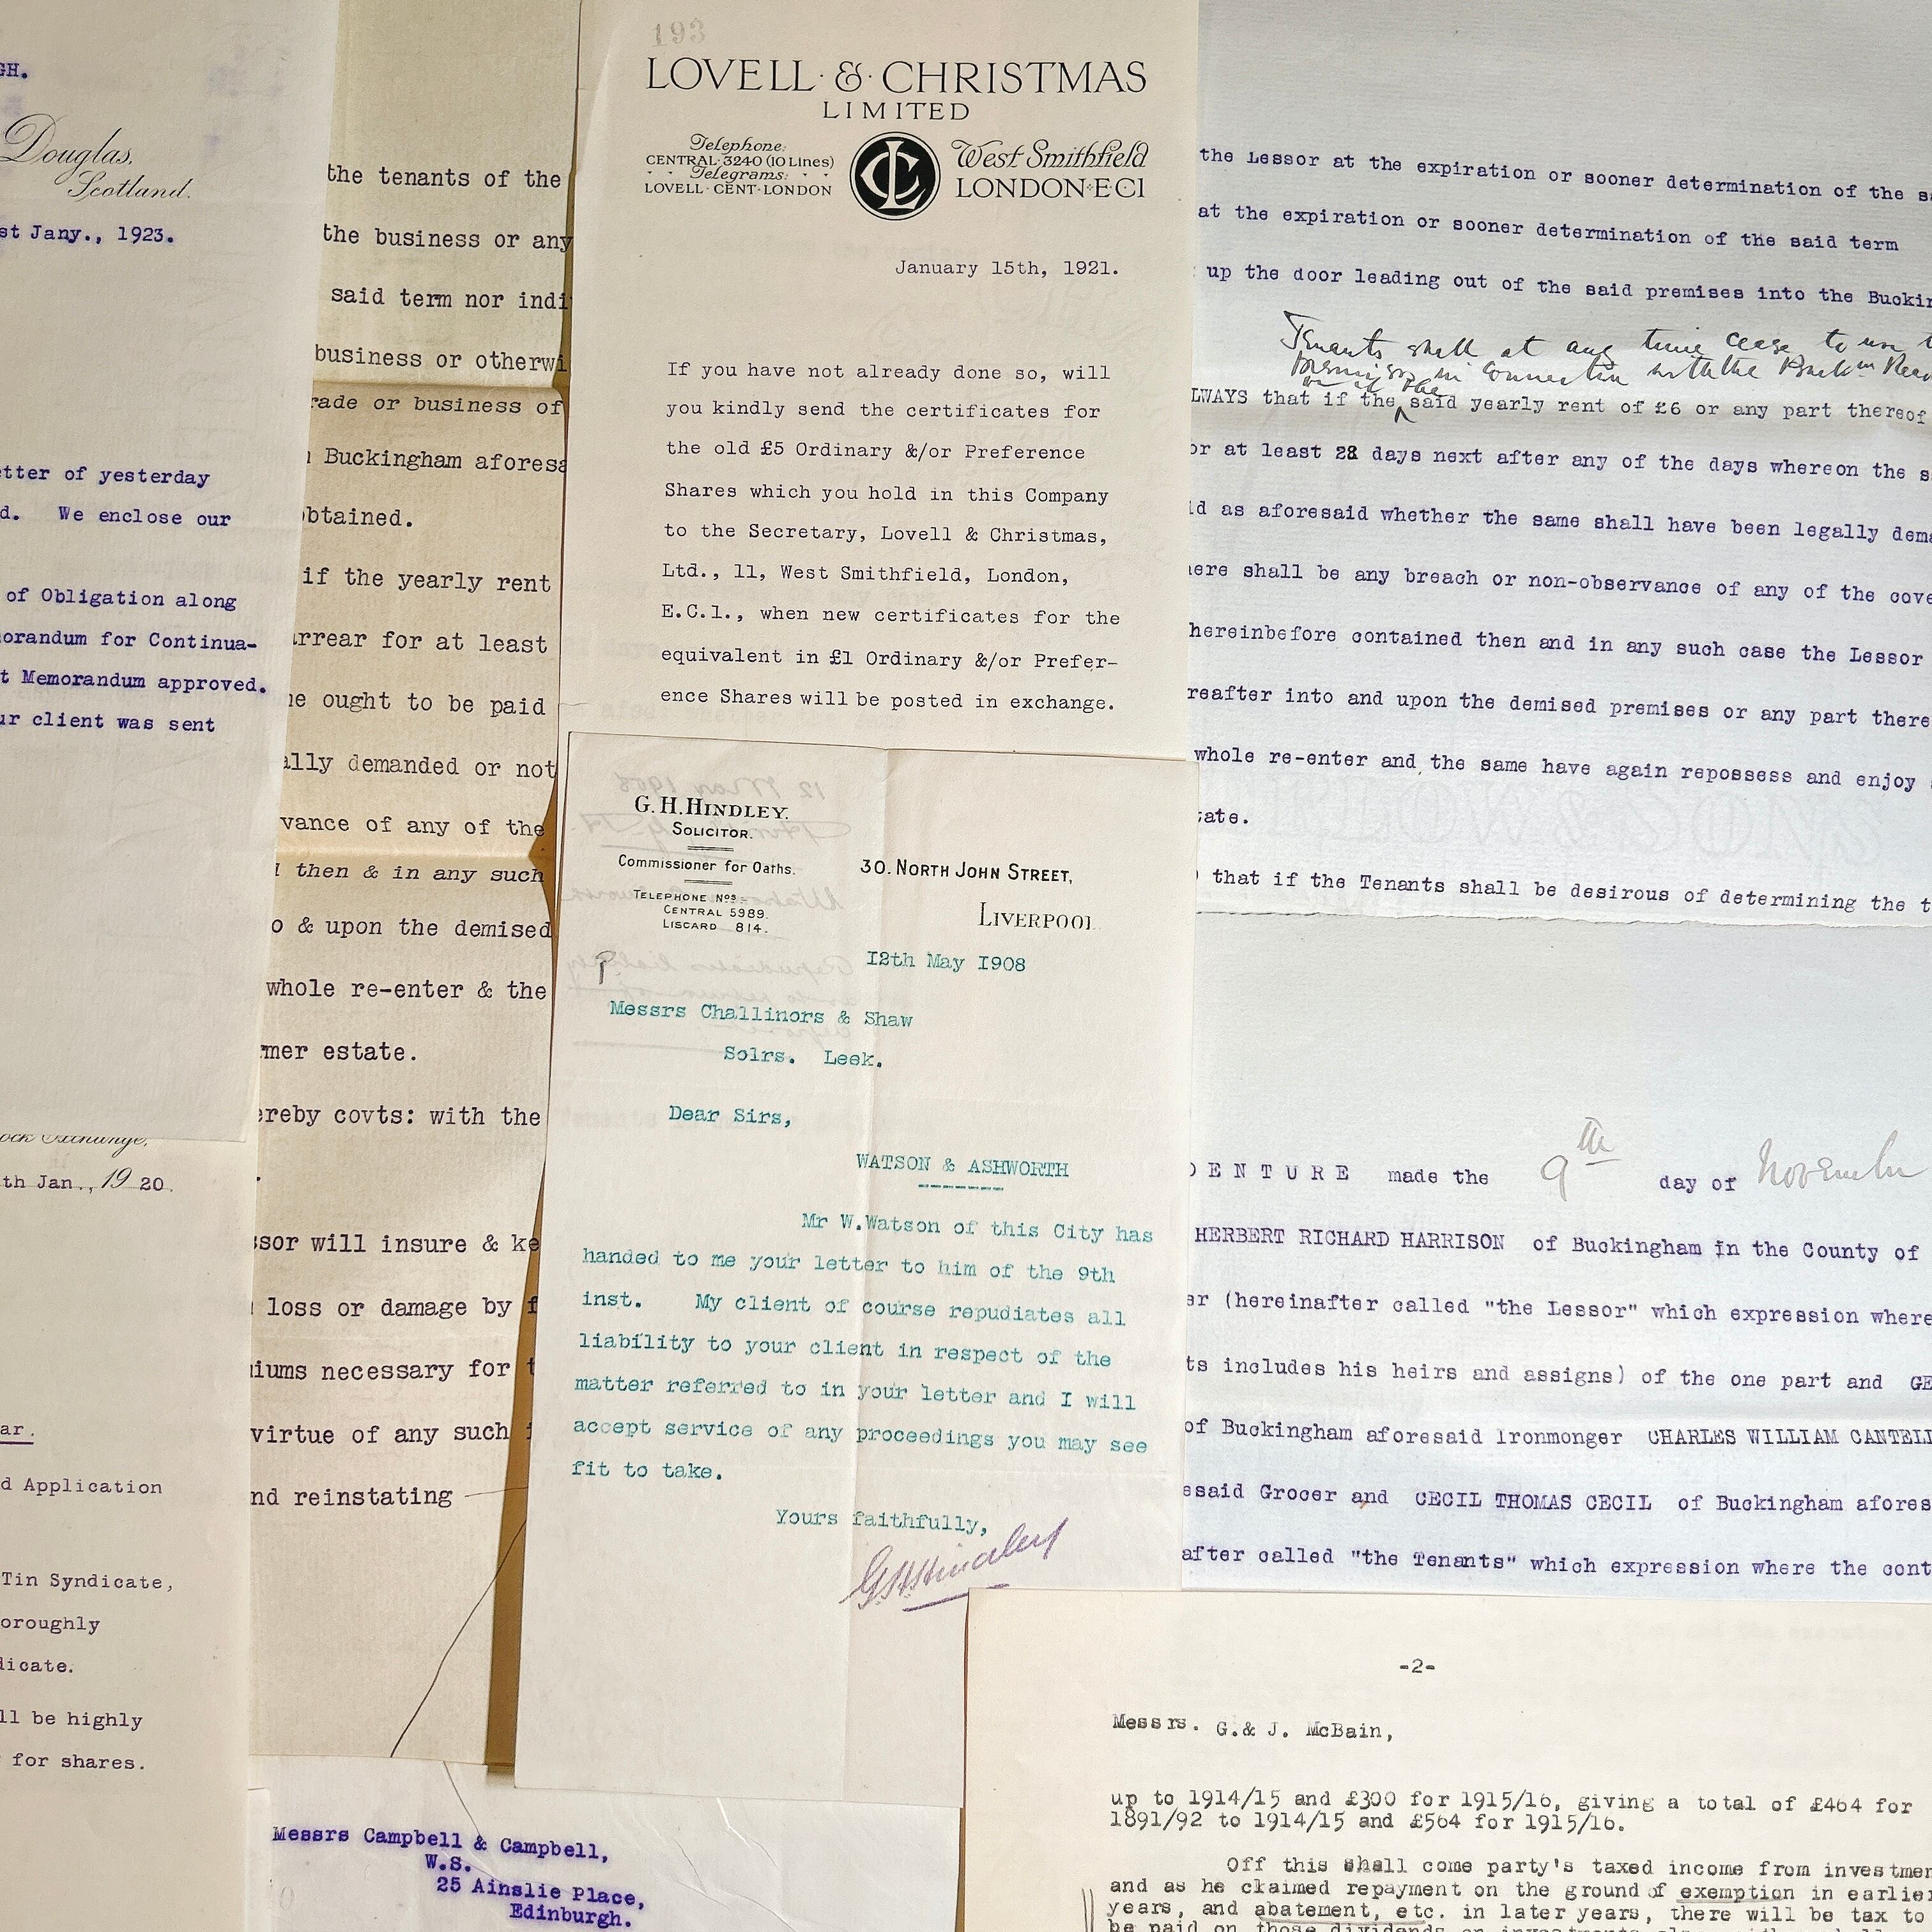 GH.
Douglas,
Scotland.
st Jany., 1923.
etter of yesterday
d. We enclose our
of Obligation along
orandum for Continua-
t Memorandum approved.
ur client was sent
ock Exchange,
th Jan., 1920.
ar.
d Application
Tin Syndicate,
oroughly
dicate.
ll be highly
for shares.
the tenants of the
the business or any
said term nor indi
business or otherwi
rade or business of
n Buckingham aforesa
obtained.
if the yearly rent
arrear for at least
ne ought to be paid
ally demanded or not
vance of any of the
d then & in any such
o & upon the demised
whole re-enter & the
rmer estate.
ereby covts: with the
ssor will insure & ke
loss or damage by f
iums necessary for t
virtue of any such
nd reinstating
Messrs Campbell & Campbell,
W.S.
25 Ainslie Place,
Edinburgh.
193
LOVELL · & · CHRISTMAS
LIMITED
Telephone:
CENTRAL · 3240 (10 Lines)
Telegrams:
LOVELL · CENT · LONDON
LC
West Smithfield
LONDON·E·C1
January 15th, 1921.
If you have not already done so, will
you kindly send the certificates for
the old £5 Ordinary &/or Preference
Shares which you hold in this Company
to the Secretary, Lovell & Christmas,
Ltd., 11, West Smithfield, London,
E.C.1., when new certificates for the
equivalent in £1 Ordinary &/or Prefer-
ence Shares will be posted in exchange.
G. H. HINDLEY.
SOLICITOR.
Commissioner for Oaths.
TELEPHONE Nos:-
CENTRAL 5989.
LISCARD 814.
30. NORTH JOHN STREET,
LIVERPOOL
12th May 1908
Messrs Challinors & Shaw
Solrs. Leek.
Dear Sirs,
WATSON & ASHWORTH
Mr W.Watson of this City has
handed to me your letter to him of the 9th
inst. My client of course repudiates all
liability to your client in respect of the
matter referred to in your letter and I will
accept service of any proceedings you may see
fit to take.
Yours faithfully,
G H Hindley
the Lessor at the expiration or sooner determination of the s
at the expiration or sooner determination of the said term
up the door leading out of the said premises into the Buckin
Tenants shall at any time cease to use t
premises in connection with the Buckm Read
or if the
LWAYS that if the said yearly rent of £6 or any part thereof
or at least 28 days next after any of the days whereon the s
id as aforesaid whether the same shall have been legally dema
here shall be any breach or non-observance of any of the cove
hereinbefore contained then and in any such case the Lessor
reafter into and upon the demised premises or any part there
whole re-enter and the same have again repossess and enjoy
tate.
that if the Tenants shall be desirous of determining the t
DENTURE made the 9th day of November
HERBERT RICHARD HARRISON of Buckingham in the County of
er (hereinafter called "the Lessor" which expression where
ts includes his heirs and assigns) of the one part and GE
of Buckingham aforesaid Ironmonger CHARLES WILLIAM CANTELL
esaid Grocer and CECIL THOMAS CECIL of Buckingham afores
after called "the Tenants" which expression where the cont
-2-
Messrs. G.& J. McBain,
up to 1914/15 and £300 for 1915/16, giving a total of £464 for
1891/92 to 1914/15 and £564 for 1915/16.
Off this shall come party's taxed income from investmen
and as he claimed repayment on the ground of exemption in earlier
years, and abatement, etc. in later years, there will be tax to
be paid on those dividends